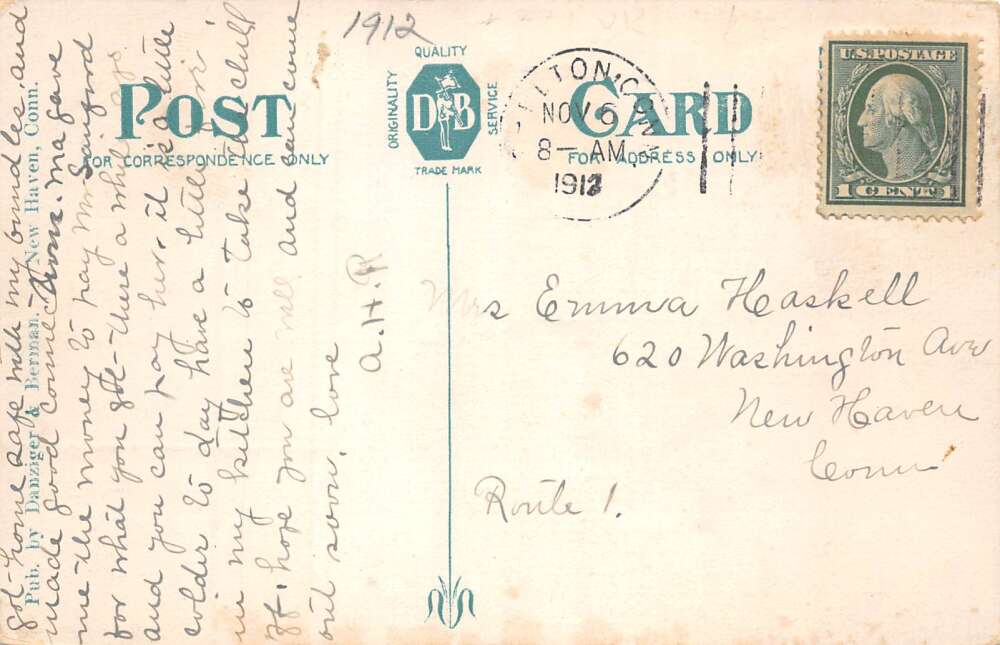 1912
POST CARD
FOR CORRESPONDENCE ONLY
FOR ADDRESS ONLY
QUALITY
ORIGINALITY
SERVICE
D B
TRADE MARK
LTON CONN
NOV 6
8 — AM
1912
U.S. POSTAGE
1 CENT 1
Mrs Emma Haskell
620 Washington Ave
New Haven
Conn
Route 1.
got home safe with my bundles, and
made good connections. Ma gave
me the money to pay Mrs Sanford
for what you got there a while ago
and you can pay her. it is a little
colder to day have a little fire
in my kitchen to take the chill
off. hope you are well and send come
out soon, love
A.H.R
Pub. by Danziger & Berman, New Haven, Conn.